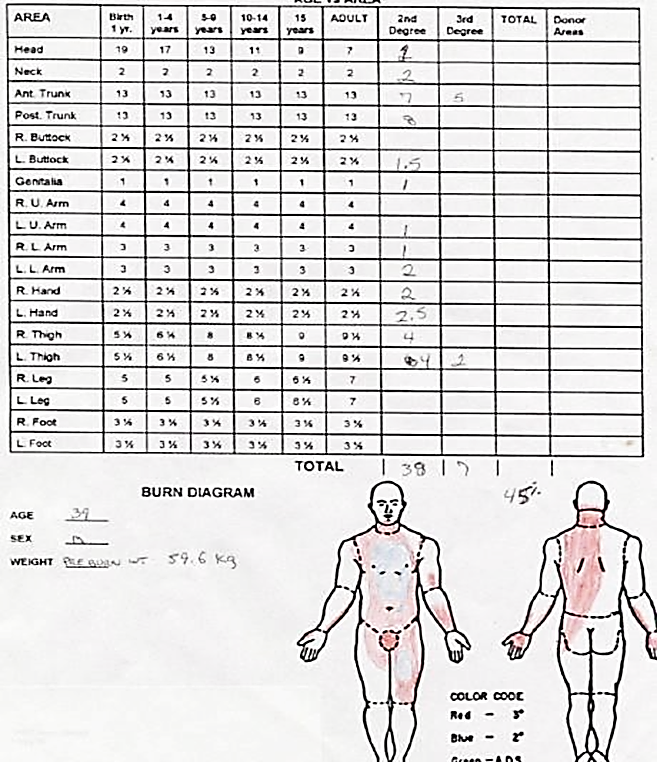 AREA Birth 1 yr. 1-4 years 5-9 years 10-14 years 15 years ADULT 2nd Degree 3rd Degree TOTAL Donor Areas
Head 19 17 13 11 9 7
Neck 2 2 2 2 2 2 2
Ant. Trunk 13 13 13 13 13 13 7 5
Post. Trunk 13 13 13 13 13 13 8
R. Buttock 2 ½ 2 ½ 2 ½ 2 ½ 2 ½ 2 ½
L. Buttock 2 ½ 2 ½ 2 ½ 2 ½ 2 ½ 2 ½ 1.5
Genitalia 1 1 1 1 1 1 1
R. U. Arm 4 4 4 4 4 4
L. U. Arm 4 4 4 4 4 4 1
R. L. Arm 3 3 3 3 3 3 1
L. L. Arm 3 3 3 3 3 3 2
R. Hand 2 ½ 2 ½ 2 ½ 2 ½ 2 ½ 2 ½ 2
L. Hand 2 ½ 2 ½ 2 ½ 2 ½ 2 ½ 2 ½ 2.5
R. Thigh 5 ½ 6 ½ 8 8 ½ 9 9 ½ 4
L. Thigh 5 ½ 6 ½ 8 8 ½ 9 9 ½ 4 2
R. Leg 5 5 5 ½ 6 6 ½ 7
L. Leg 5 5 5 ½ 6 6 ½ 7
R. Foot 3 ½ 3 ½ 3 ½ 3 ½ 3 ½ 3 ½
L. Foot 3 ½ 3 ½ 3 ½ 3 ½ 3 ½ 3 ½
TOTAL 38 7
45%
BURN DIAGRAM
AGE 39
SEX
WEIGHT PREBURN WT 59.6 Kg
COLOR CODE
Red - 3°
Blue - 2°
Green - A.D.S.